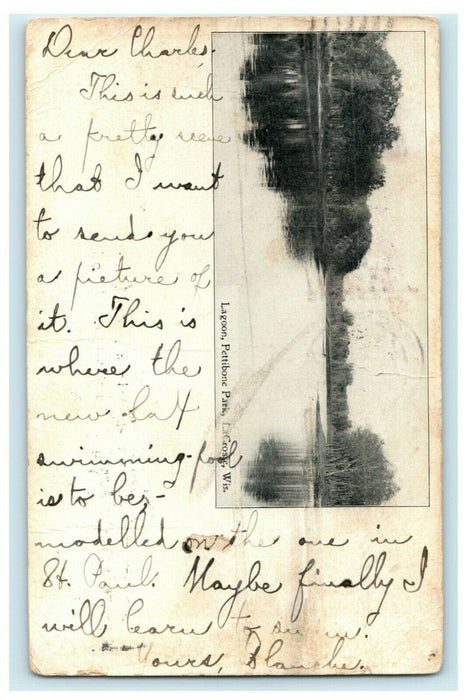 Dear Charles-
This is such
a pretty scene
that I want
to send you
a picture of
it. This is
where the
new
swimming-pool
is to be,-
modelled on the one in
St. Paul. Maybe finally I
will learn to swim.
Yours, Blanche.
Lagoon, Pettibone Park, LaCrosse, Wis.